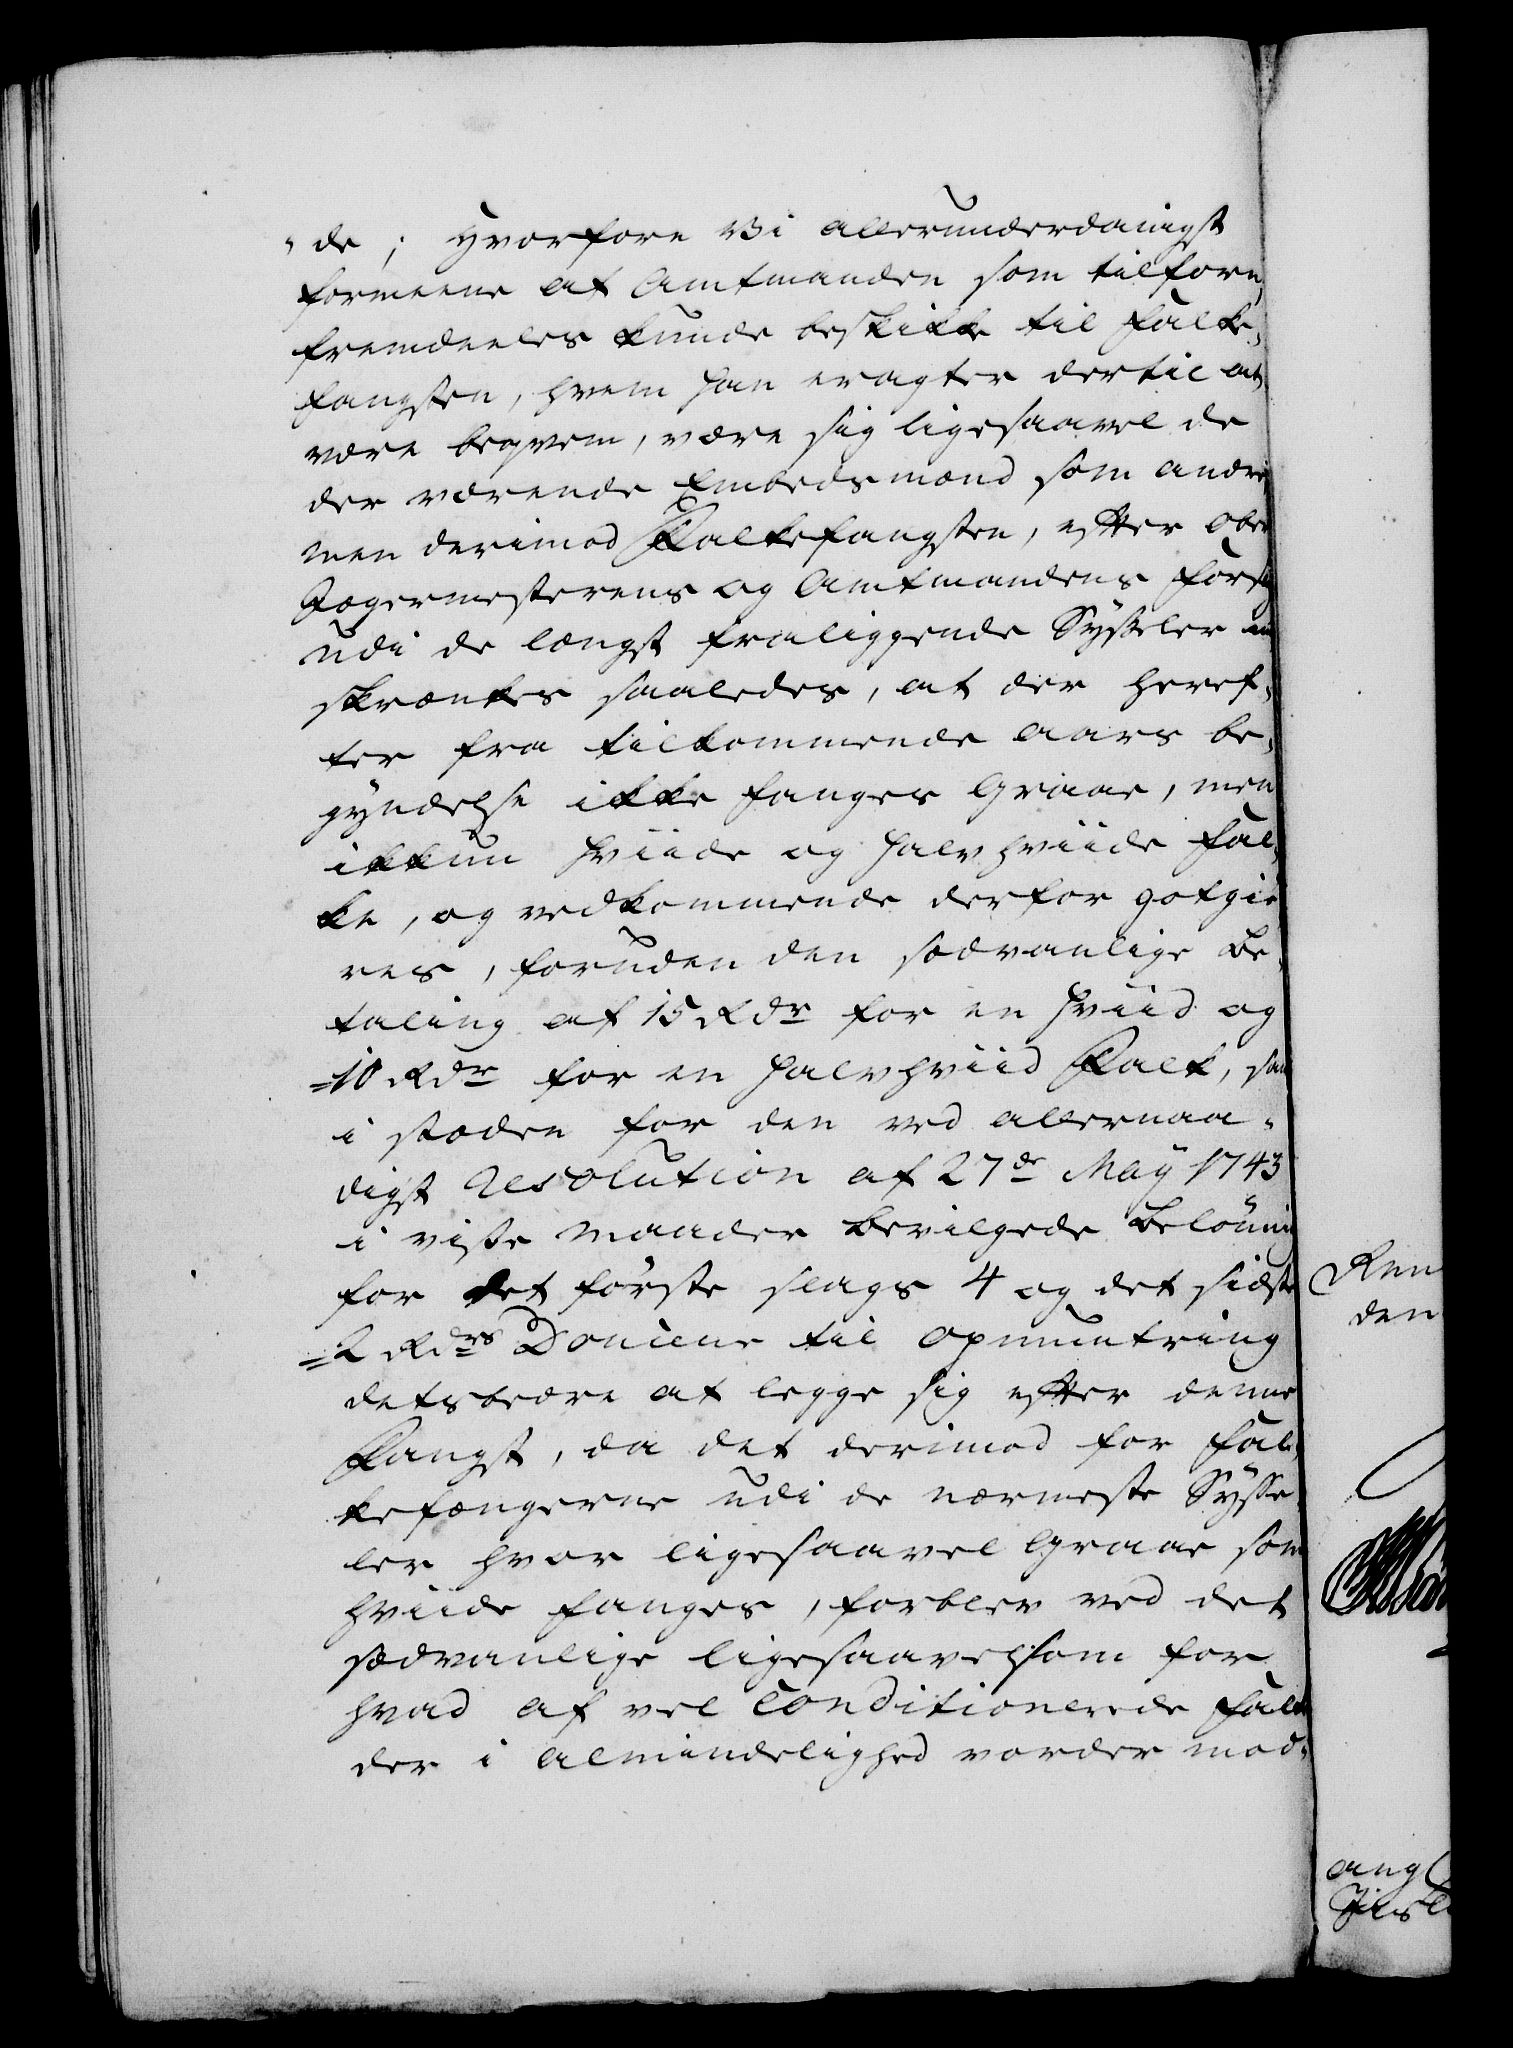 "de; Hvorfore Vi allerunderdanigst
formeene at Amtmanden som tilforn,
fremdeeles kunde beskikke til Falke-
fangsten, hvem han eragter dertil at
være beqvem, være sig ligesaavel de
der værende Embedsmænd som andre,
men derimod Falkefangsten, efter Ober
Jægermesterens og Amtmandens
udi de længst fraliggende Sysseler
skrænkes saaledes, at der heref-
ter fra tilkommende aars be-
gyndelse ikke fanges Graae, men
ikkun hviide og halvhviide Fal-
ke, og vedkommende derfor gotgiö
res, foruden den sædvanlige Be-
taling af 15 Rdr for en hviid og
=10 Rdr for en halvhviid Falk, saa
i stæden for den ved allernaa-
digst Resolution af 27de Maÿ 1743
i visse Maader bevilgede Belönning
for det förste slags 4 og det sidste
=2 Rdrs Douceur til opmuntring
detsbedre at legge sig efter denne
Fangst, da det derimod for Fal-
kefængerne udi de nærmeste Sysse-
ler hvor ligesaavel Graae som
hviide fanges, forblev ved det
sædvanlige ligesaavelsom for
hvad af vel Conditionerede Falke
der i almindelighed vorder mod-
Ren
den